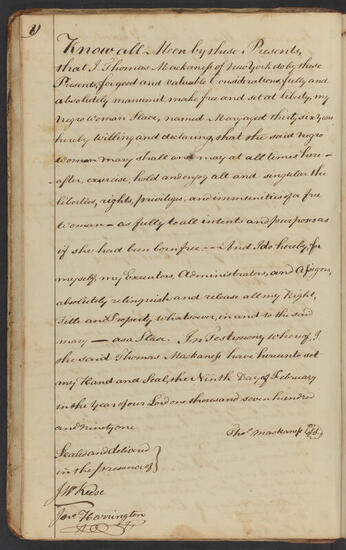 8)
Know all Men by these Presents,
that I Thomas Mackaness of New York do by these
Presents, for good and valuable Considerations, fully and
absolutely manumit make free and set at liberty, my
negro woman Slave, named Mary aged thirty six years
hereby Willing and declaring, that the said negro
woman mary shall and may at all times here-
after, exercise, hold and enjoy all and singular the
liberties, rights, privileges, and immunities of a free
Woman — as fully to all intents and purposes as
if she had been born free — And I do hereby, for
myself, my Executors Administrators, and Assigns,
absolutely relinquish and release all my Right,
Title and Property whatsoever, in and to the said
mary — as a Slave. In Testimony whereof, I
the said Thomas Mackaness have hereunto set
my Hand and Seal, the Ninth Day of February
in the Year of our Lord one thousand seven hundred
and ninety one
Thos. Mackaness
Sealed and delivered
in the presence of
J W Keese
Harrington